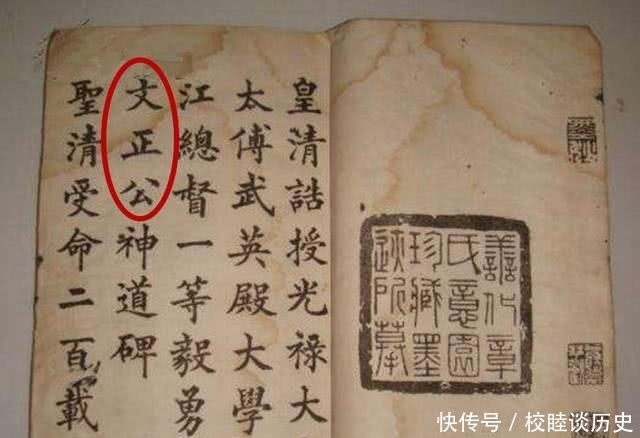 善化章
氏意園
珍藏墨
所摹
皇清誥授光祿大
太傅武英殿大學
江總督一等毅勇
文正公神道碑
聖清受命二百載
快传号/校睦谈历史